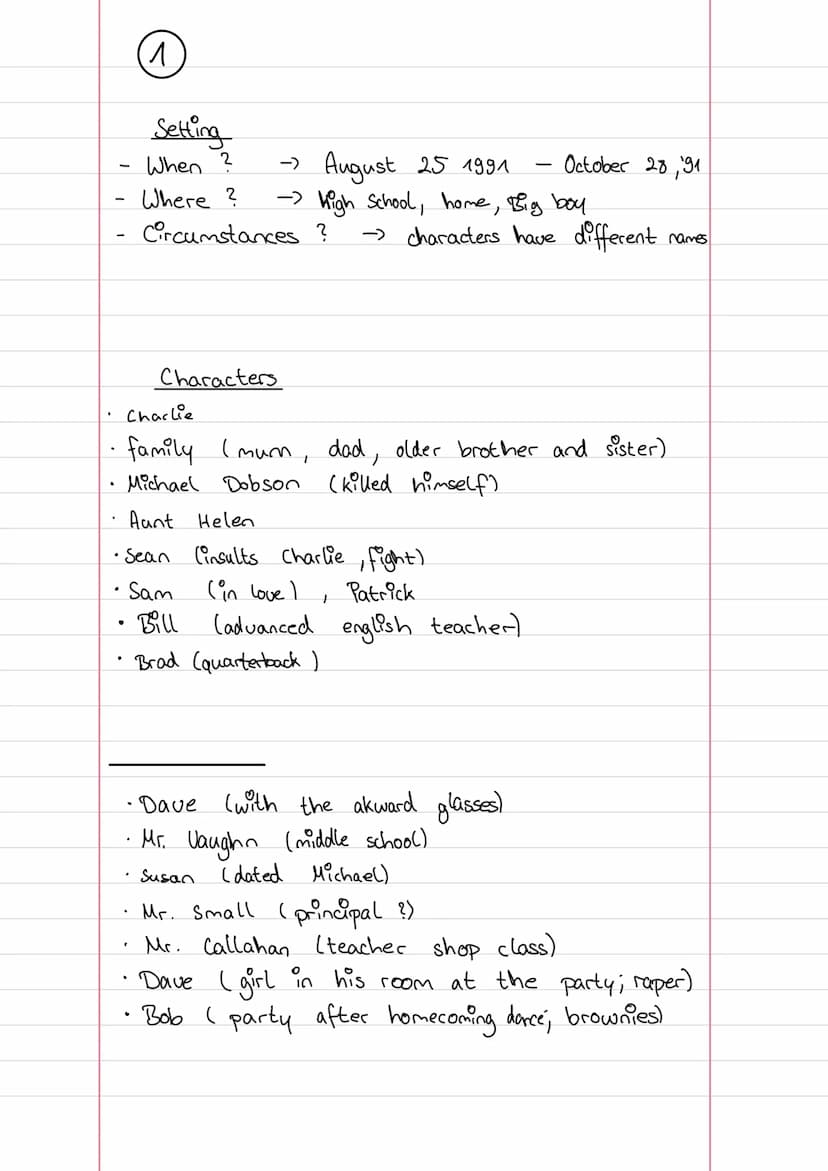 1
Setting
- When ? -> August 25 1991 – October 28 ,'91
- Where ? -> High School, home, Big boy
- Circumstances ? -> characters have different names
Characters
· Charlie
· family (mum, dad, older brother and sister)
· Michael Dobson (killed himself)
· Aunt Helen
· Sean (insults Charlie, fight)
· Sam (in love), Patrick
· Bill (advanced english teacher)
· Brad (quarterback)
· Dave (with the akward glasses)
· Mr. Vaughn (middle school)
· Susan (dated Michael)
· Mr. Small (principal ?)
· Mr. Callahan (teacher shop class)
· Dave (girl in his room at the party; raper)
· Bob (party after homecoming dance; brownies)